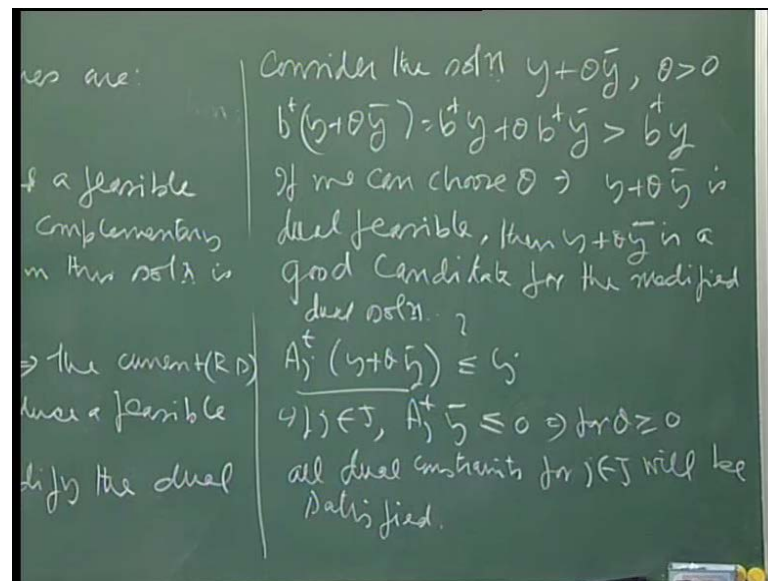 nes are:
a feasible
complementary
m this soln is
⇒ the current (RD)
duce a feasible
dify the dual
Consider the soln y+θȳ, θ>0
bᵗ(y+θȳ) = bᵗy+θbᵗȳ > bᵗy
If we can choose θ ∋ y+θȳ is
dual feasible, then y+θȳ is a
good Candidate for the modified
dual soln.
Ajᵗ (y+θȳ) ≤ cj ?
If j∈J, Ajᵗ ȳ ≤ 0 ⇒ for θ≥0
all dual constraints for j∈J will be
satisfied.